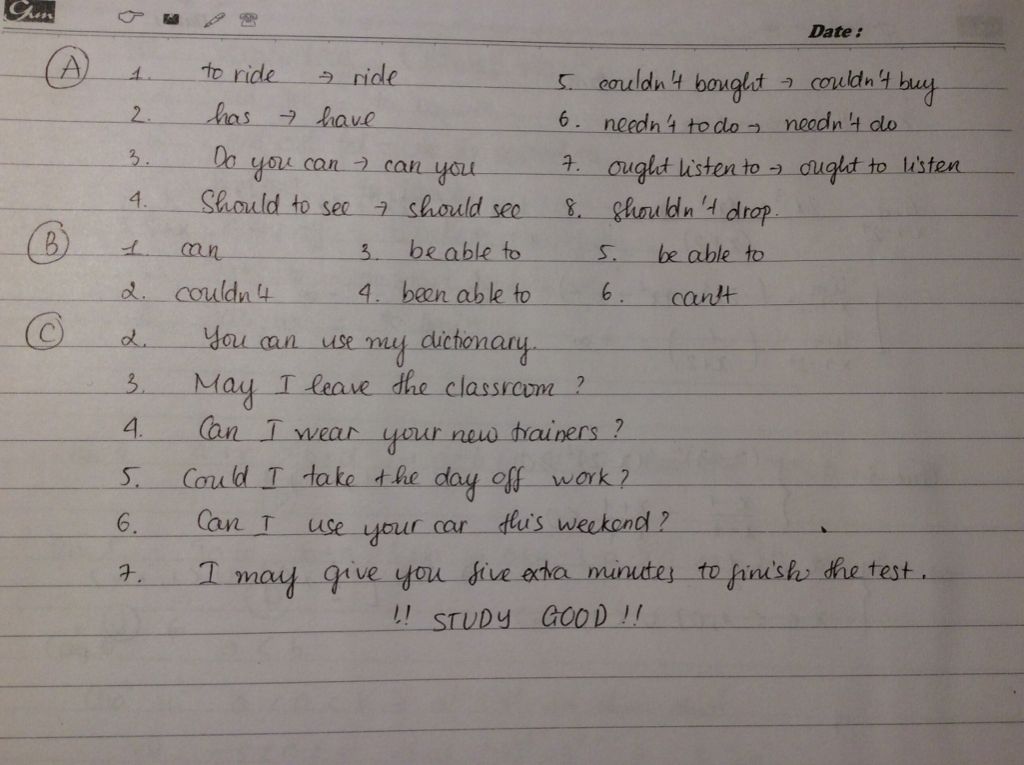 Date :
A 1. to ride → ride 5. couldn't bought → couldn't buy
2. has → have 6. needn't to do → needn't do
3. Do you can → can you 7. ought listen to → ought to listen
4. Should to see → should see 8. shouldn't drop.
B 1. can 3. be able to 5. be able to
2. couldn't 4. been able to 6. can't
C 2. You can use my dictionary.
3. May I leave the classroom ?
4. Can I wear your new trainers ?
5. Could I take the day off work ?
6. Can I use your car this weekend ?
7. I may give you five extra minutes to finish the test.
!! STUDY GOOD !!